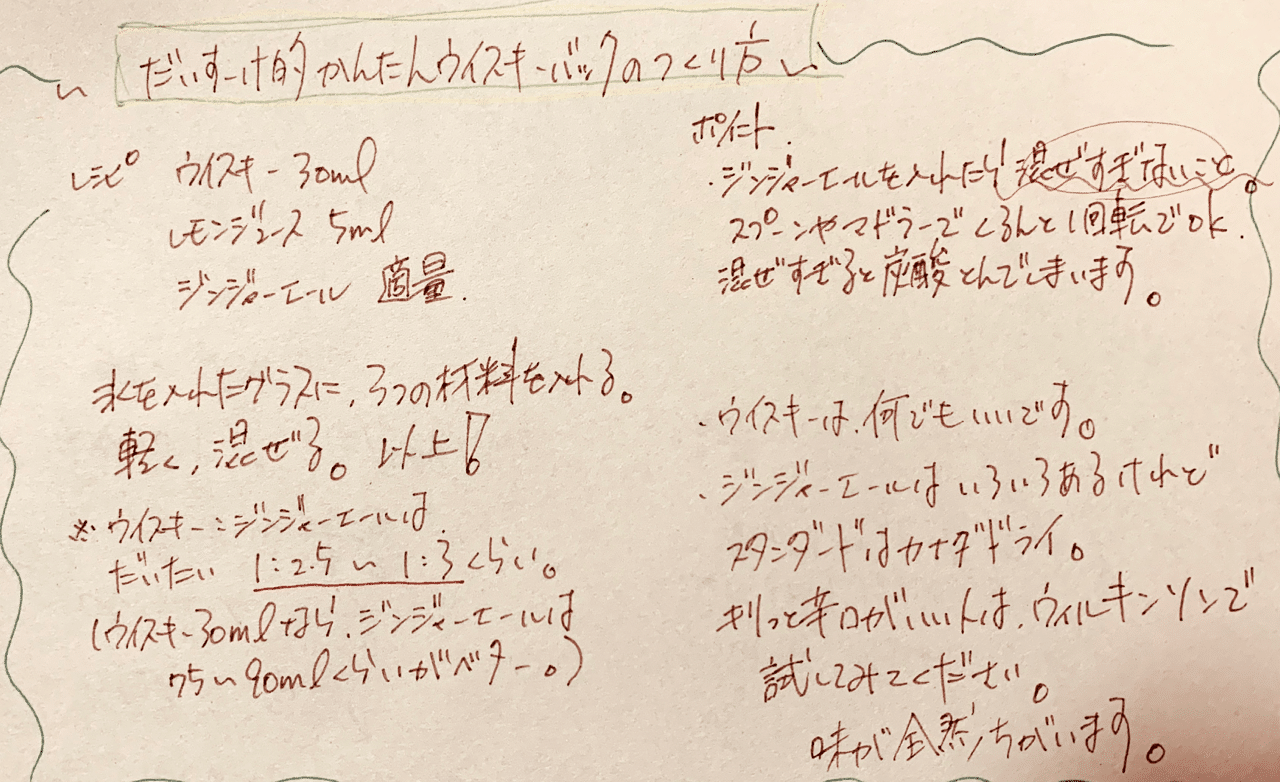 〜 だいすーけ的 かんたんウイスキーバックのつくり方 〜
レシピ ウイスキー 30ml
レモンジュース 5ml
ジンジャーエール 適量.
氷を入れたグラスに、3つの材料を入れる。
軽く、混ぜる。以上!
※ ウイスキー:ジンジャーエールは、
だいたい 1:2.5〜1:3くらい。
(ウイスキー30mlなら、ジンジャーエールは
75〜90mlくらいがベター。)
ポイント.
・ジンジャーエールを入れたら混ぜすぎないこと。
スプーンやマドラーでくるんと1回転でOK.
混ぜすぎると炭酸とんでしまいます。
・ウイスキーは、何でもいいです。
・ジンジャーエールはいろいろあるけれど
スタンダードはカナダドライ。
キリっと辛口がいい人は、ウィルキンソンで
試してみてください。
味が全然ちがいます。